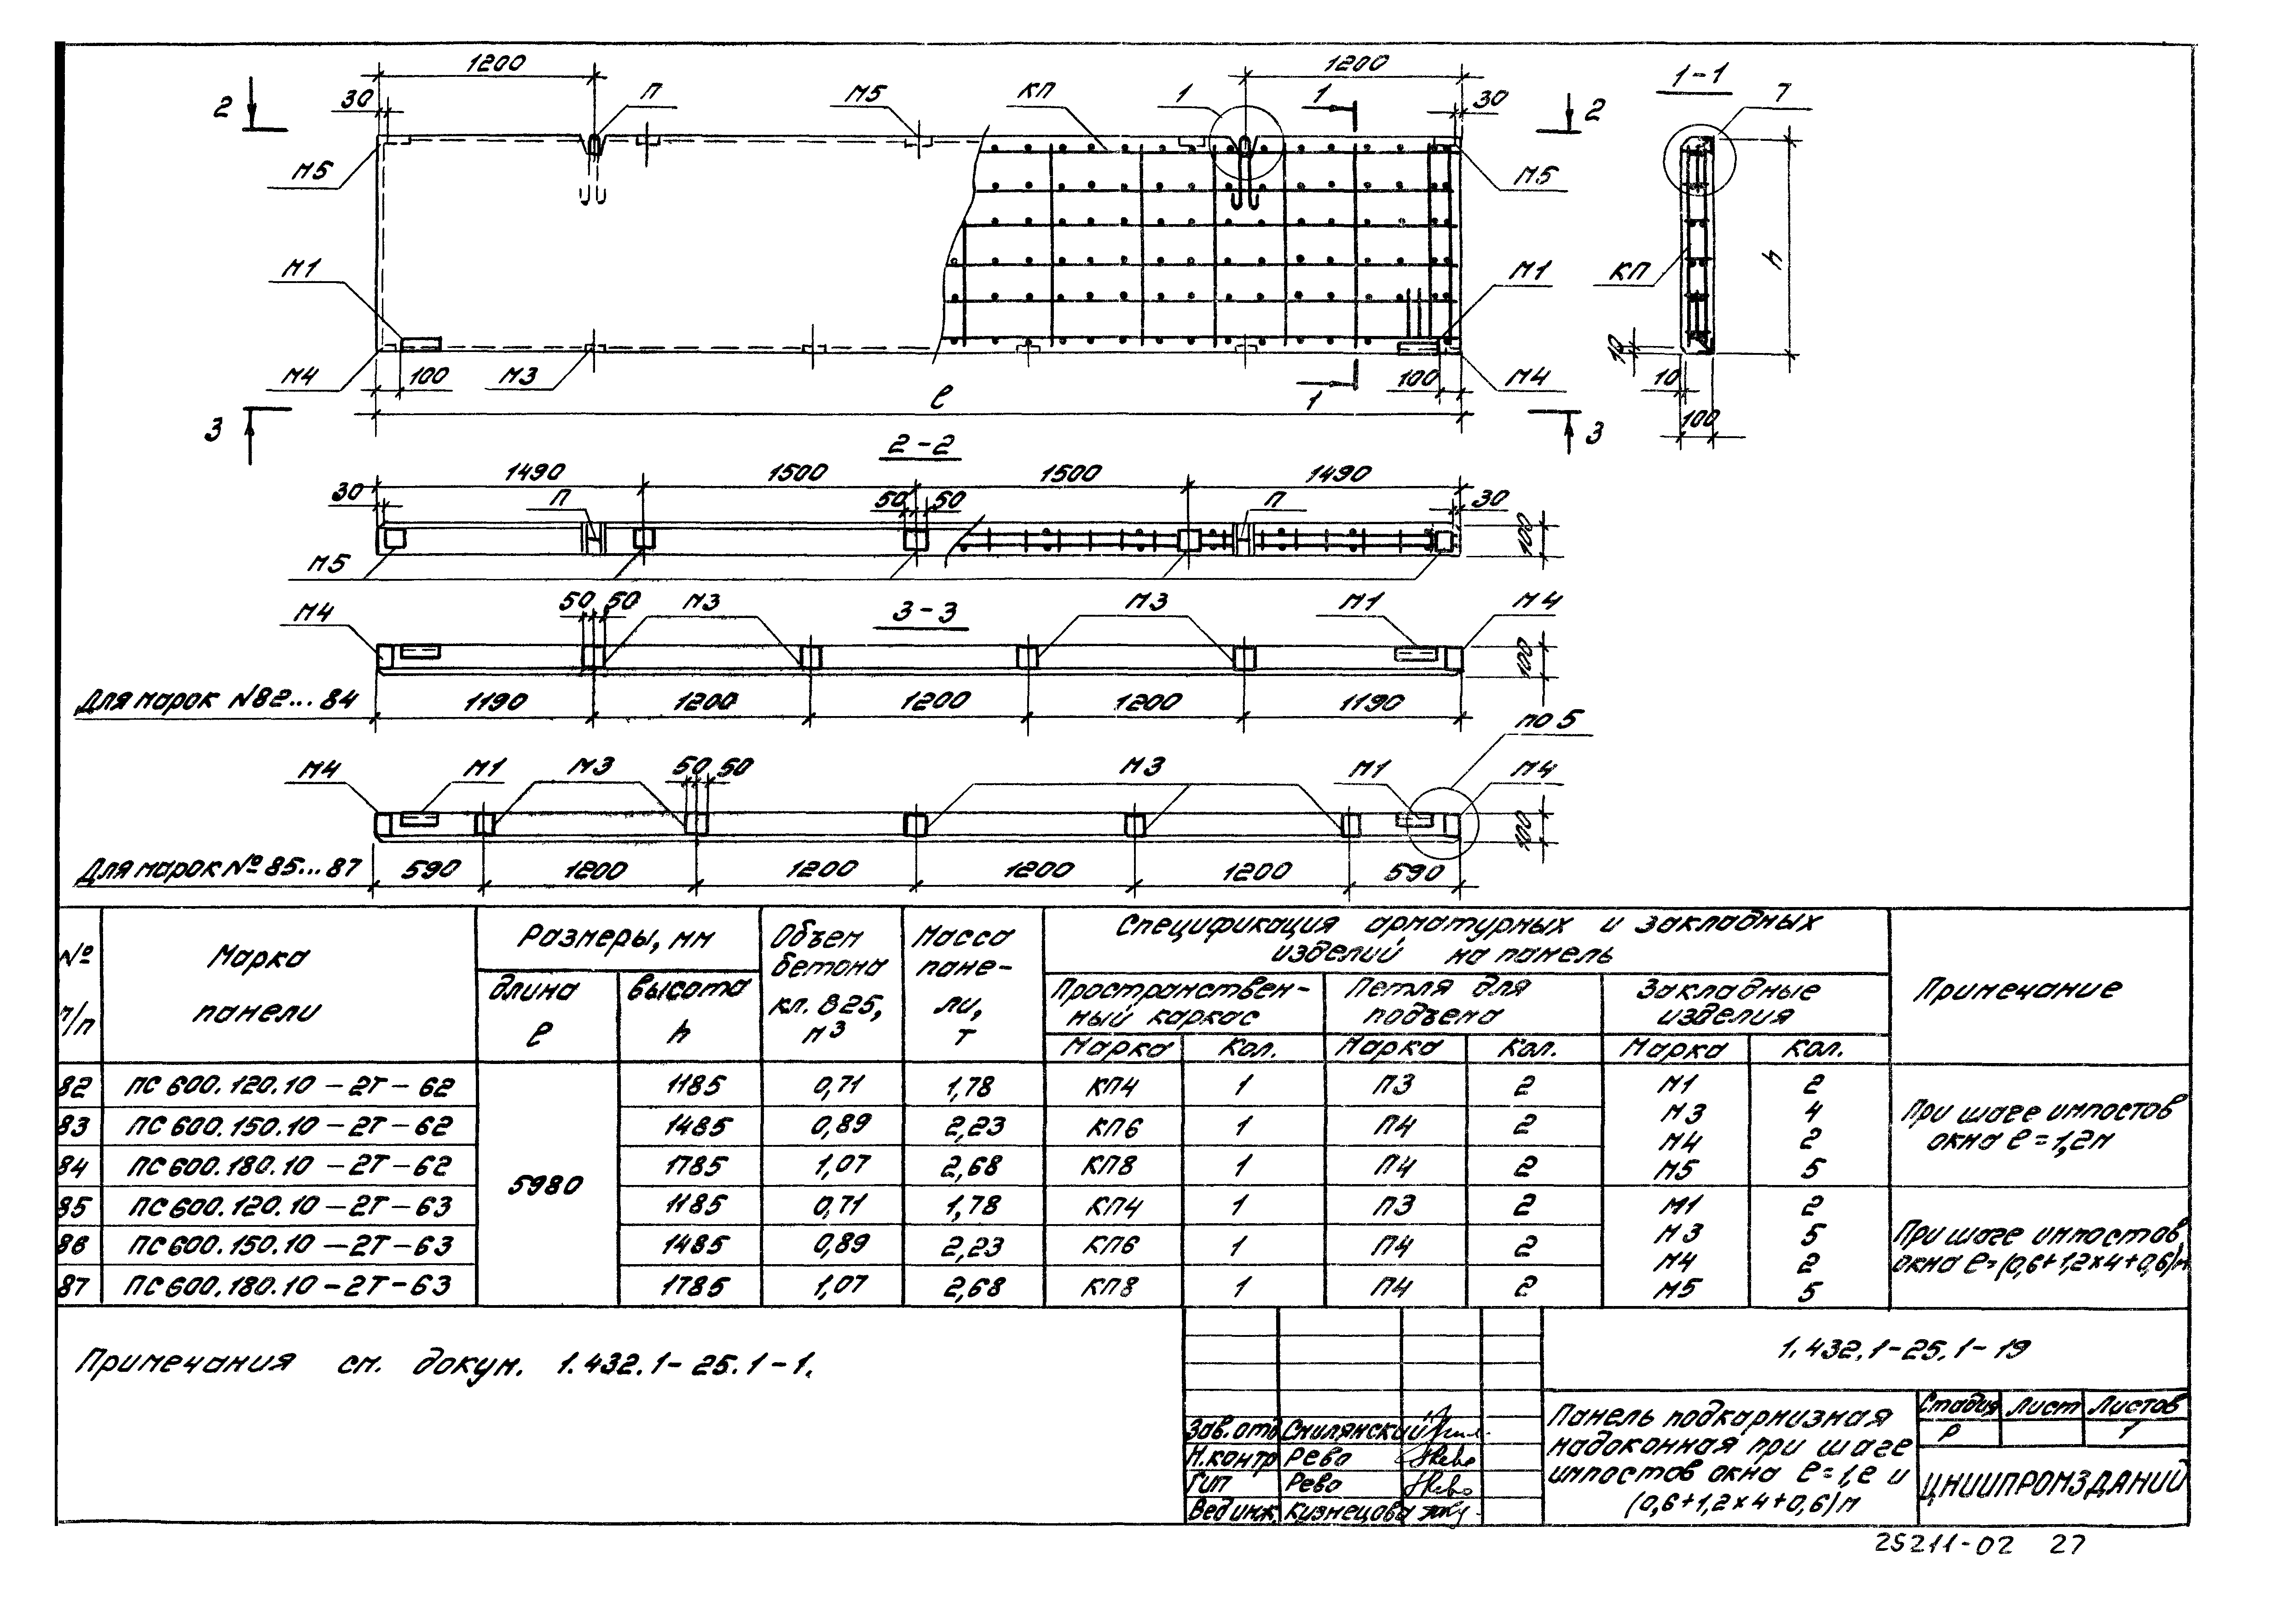 1200
1200
1-1
30
П
М5
КП
1
1
30
7
2
2
М5
М5
М1
М1
КП
h
М4
100
М3
100
М4
10
10
100
ℓ
1
3
3
2-2
1490
1500
1500
1490
30
П
50
50
П
30
100
М5
М4
50
50
М3
3-3
М3
М1
М4
100
Для марок N82...84
1190
1200
1200
1200
1190
по 5
М4
М1
М3
50
50
М3
М1
М4
100
Для марок № 85...87
590
1200
1200
1200
1200
590
№ п/п
Марка панели
Размеры, мм
длина ℓ
высота h
Объем бетона кл. В25, м3
Масса панели, т
Спецификация арматурных и закладных изделий на панель
Пространственный каркас
Петля для подъема
Закладные изделия
Примечание
Марка Кол. Марка Кол. Марка Кол.
82 ПС 600.120.10 – 2Т – 62 1185 0,71 1,78 КП4 1 П3 2
83 ПС 600.150.10 – 2Т – 62 1485 0,89 2,23 КП6 1 П4 2
84 ПС 600.180.10 – 2Т – 62 1785 1,07 2,68 КП8 1 П4 2
85 ПС 600.120.10 – 2Т – 63 1185 0,71 1,78 КП4 1 П3 2
86 ПС 600.150.10 – 2Т – 63 1485 0,89 2,23 КП6 1 П4 2
87 ПС 600.180.10 – 2Т – 63 1785 1,07 2,68 КП8 1 П4 2
5980
М1 2
М3 4
М4 2
М5 5
М1 2
М3 5
М4 2
М5 5
При шаге импостов
окна ℓ = 1,2м
При шаге импостов
окна ℓ=(0,6+1,2х4+0,6)м
Примечания см. докум. 1.432.1- 25.1-1.
1.432.1-25.1-19
Зав.отд Смилянский
Н.контр Рево
ГИП Рево
Вед.инж. Кузнецова
Панель подкарнизная
надоконная при шаге
импостов окна ℓ=1,2 и
(0,6+1,2х4+0,6)м
Стадия Лист Листов
Р 1
ЦНИИПРОМЗДАНИЙ
25211-02 27